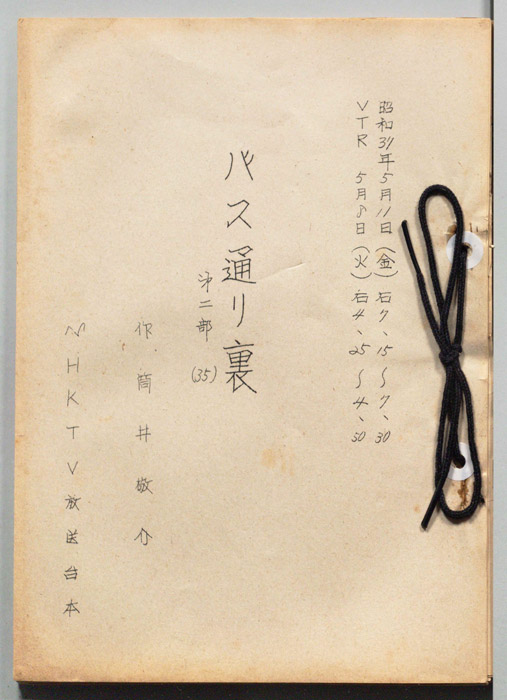 昭和37年5月11日(金)后7、15〜7、30
VTR 5月8日(火)后4、25〜4、50
バス通り裏
第二部(35)
作 筒井敬介
NHKTV放送台本